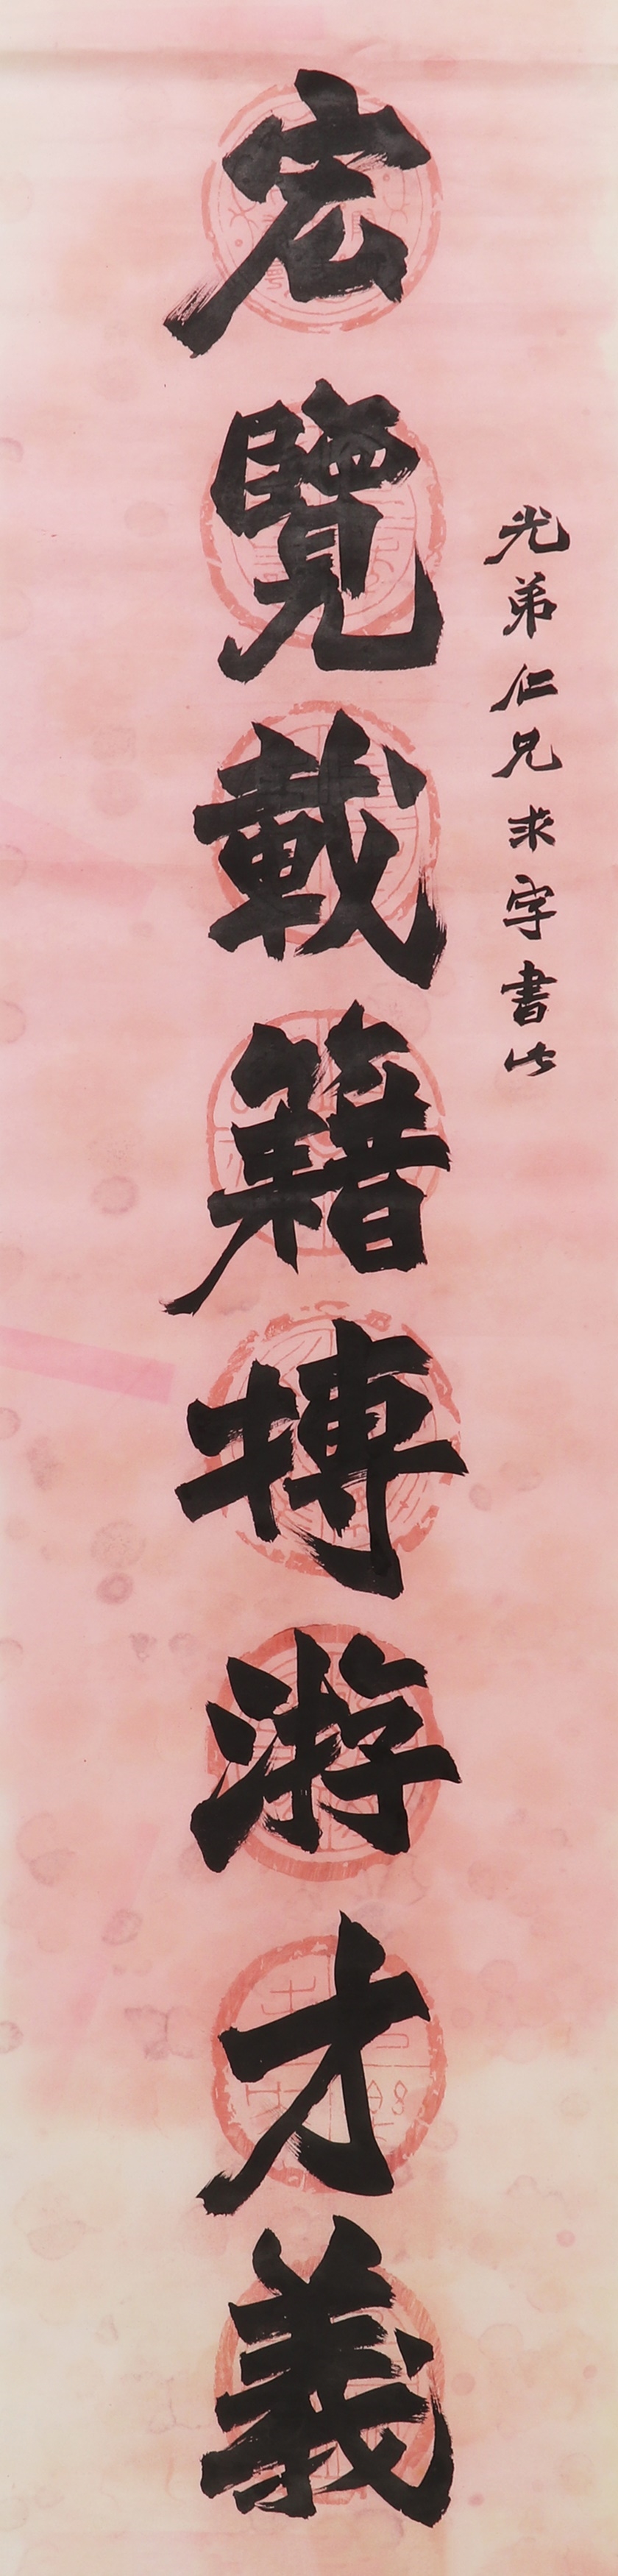 光弟仁兄求字書此
宏覽載籍博游才義